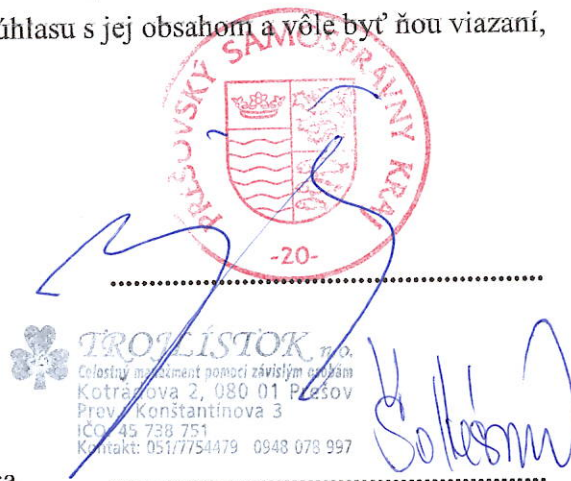 úhlasu s jej obsahom a vôle byť ňou viazaní,
PREŠOVSKÝ SAMOSPRÁVNY KRAJ
-20-
TROJLÍSTOK n.o.
Celostný manažment pomoci závislým osobám
Kotrádova 2, 080 01 Prešov
Prev. Konštantínova 3
IČO: 45 738 751
Kontakt: 051/7754479 0948 078 997